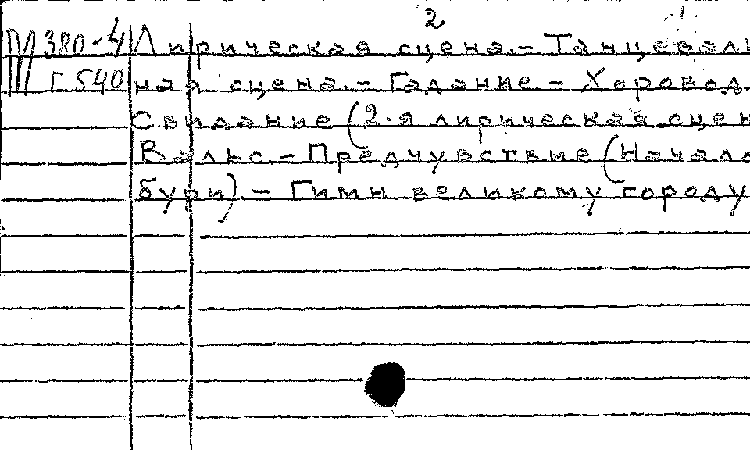 2
М 380-4 Лирическая сцена.- Танцеваль
Г 540 ная сцена.- Гадание.- Хоровод.
Свидание (2-я лирическая сцен
Вальс.- Предчувствие (Начало
бури).- Гимн великому городу